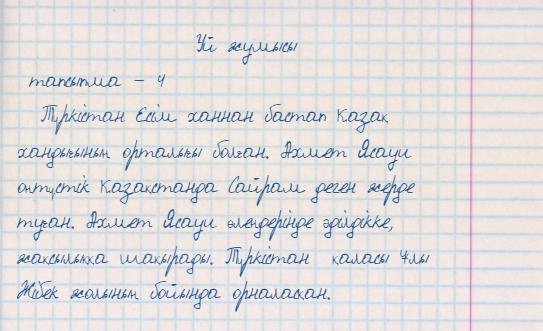 Үй жумысы
тапсытма - 4
Түркістан Есім ханнан бастап Қазақ
хандығының орталығы болған. Ахмет Ясауи
оңтүстік Қазақстанда Сайрам деген жерде
туған. Ахмет Ясауи өлеңдерінде әділдікке,
жақсылыққа шақырады. Түркістан қаласы Ұлы
Жібек жолының бойында орналасқан.